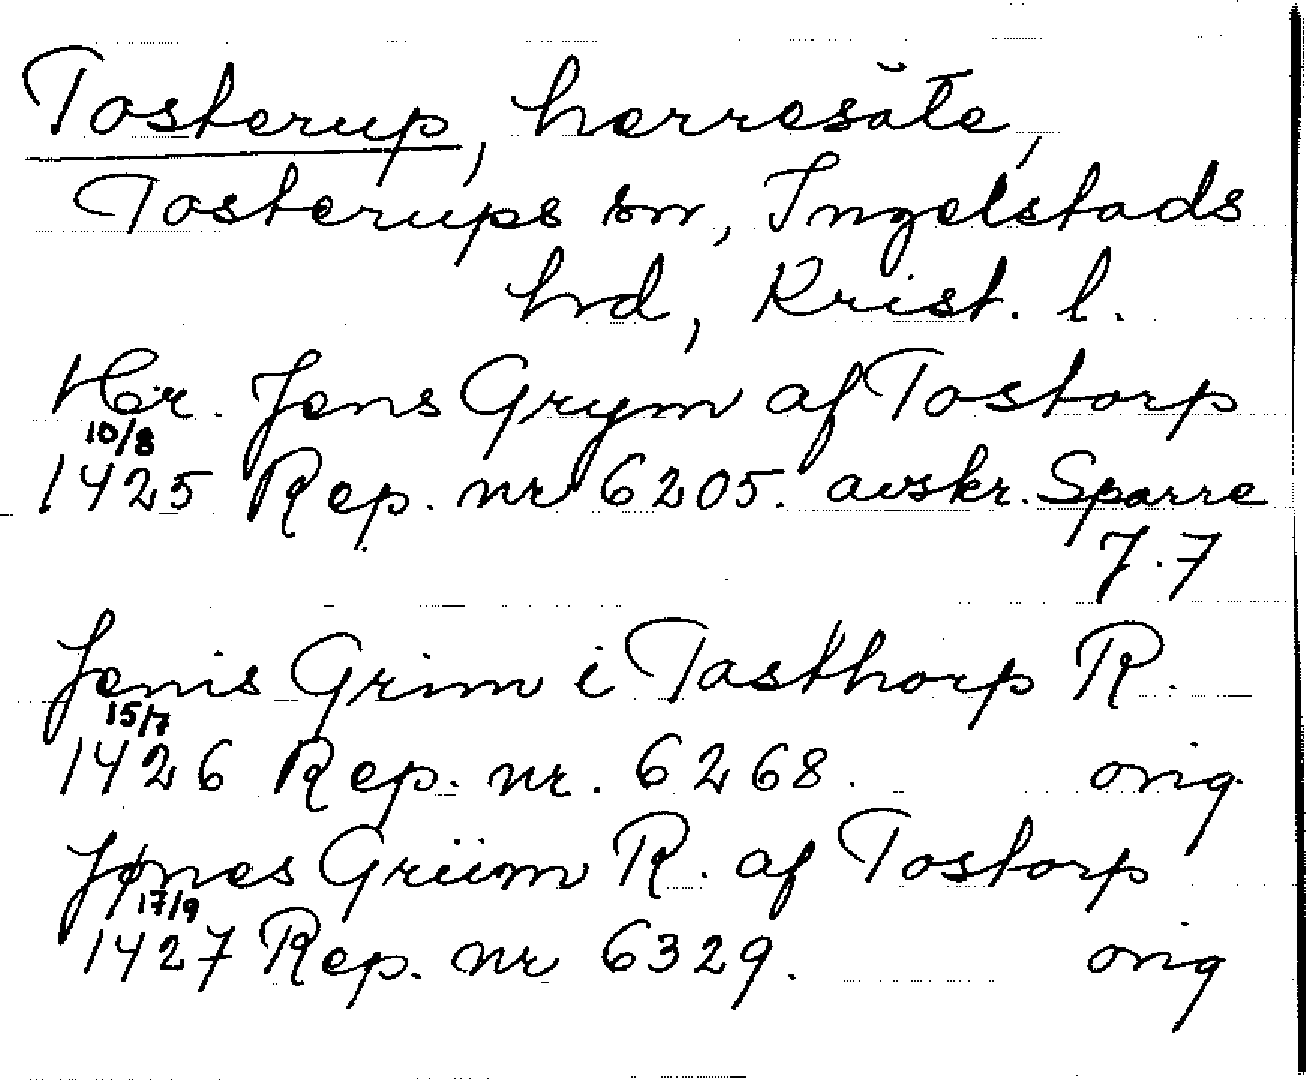 Tosterup, herresäte,
Tosterups sn, Ingelstads
hrd, Krist. l.
Hr. Jens Grym af Tostorp
10/8
1425 Rep. nr 6205. avskr. Sparre
7.7
Jenis Grim i Tasthorp R.
15/7
1426 Rep. nr. 6268. orig.
Jønes Griim R. af Tostorp
17/9
1427 Rep. nr 6329. orig